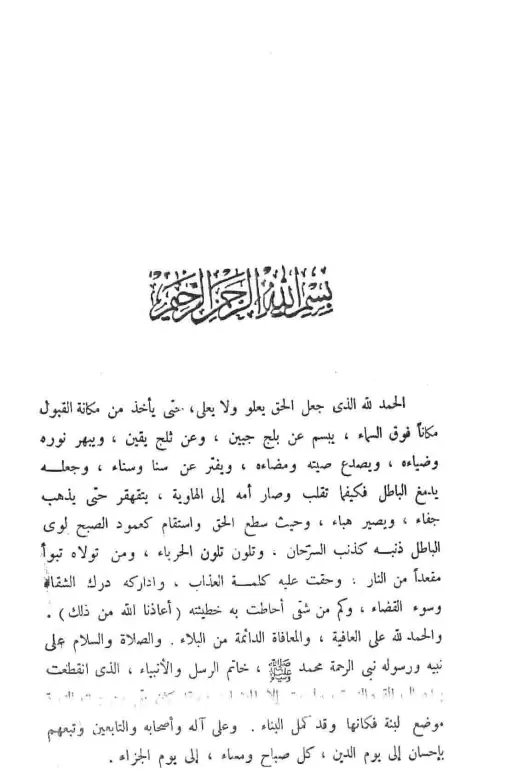 بسم الله الرحمن الرحيم
الحمد لله الذى جعل الحق يعلو ولا يعلى، حتى يأخذ من مكانة القبول
مكاناً فوق السماء ، يبسم عن بلج جبين ، وعن ثلج يقين ، ويبهر نوره
وضياءه ، ويصدع صيته ومضاءه ، ويفتر عن سنا وسناء ، وجعله
يدمغ الباطل فكيفما تقلب وصار أمه إلى الهاوية ، يتقهقر حتى يذهب
جفاء ، ويصير هباء ، وحيث سطع الحق واستقام كعمود الصبح لوى
الباطل ذنبه كذنب السرّحان ، وتلون تلون الحرباء ، ومن تولاه تبوأ
مقعداً من النار . وحقت عليه كلمة العذاب ، واداركه درك الشقاء
وسوء القضاء ، وكم من شقى أحاطت به خطيئته ( أعاذنا الله من ذلك ) .
والحمد لله على العافية ، والمعافاة الدائمة من البلاء . والصلاة والسلام على
نبيه ورسوله نبى الرحمة محمد ﷺ ، خاتم الرسل والأنبياء ، الذى انقطعت
موضع لبنة فكانها وقد كمل البناء . وعلى آله وأصحابه والتابعين وتبعهم
بإحسان إلى يوم الدين ، كل صباح ومساء ، إلى يوم الجزاء .